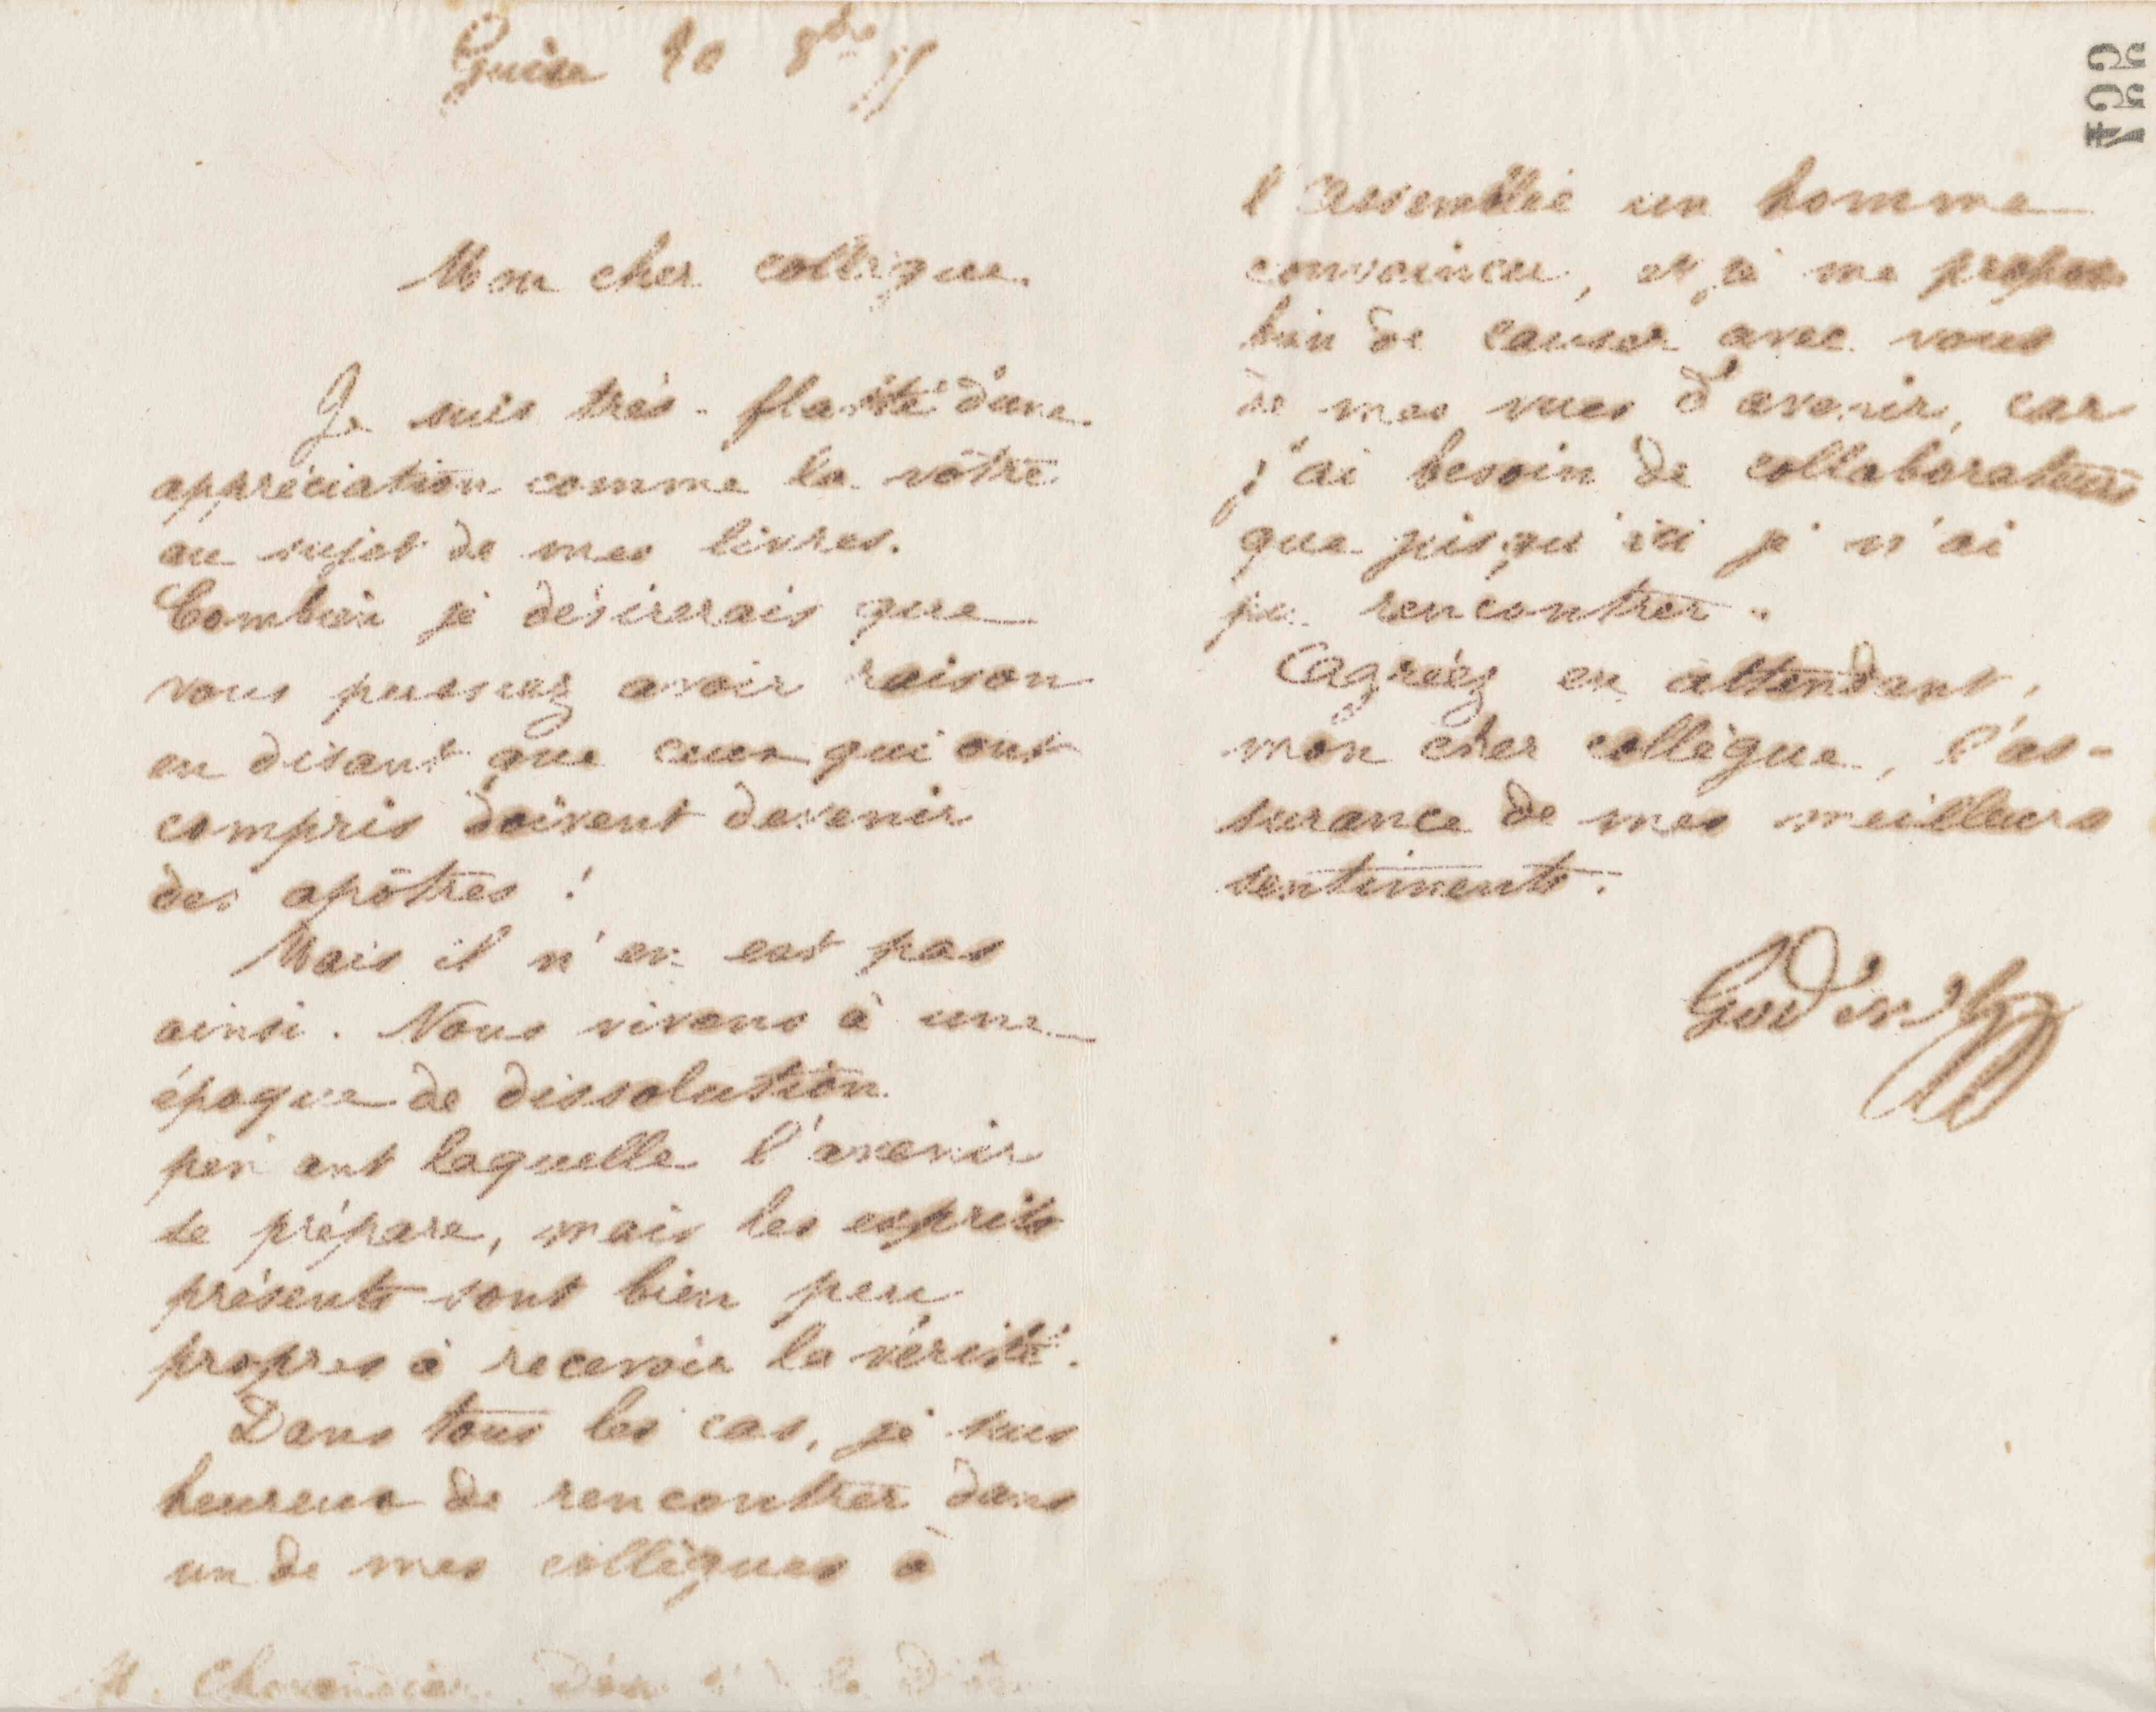 Guise 20 8bre 75
Mon cher collègue.
Je suis très-flatté d'une
appréciation comme la vôtre
au sujet de mes livres.
Combien je désirerais que
vous pussiez avoir raison
en disant que ceux qui ont
compris doivent devenir
des apôtres !
Mais il n'en est pas
ainsi. Nous vivons à une
époque de dissolution
pendant laquelle l'avenir
se prépare, mais les esprits
présents sont bien peu
propres à recevoir la vérité.
Dans tous les cas, je suis
heureux de rencontrer dans
un de mes collègues à
M.
554
l'Assemblée un homme
convaincu, et je me propose
bien de causer avec vous
de mes vues d'avenir, car
j'ai besoin de collaborateurs
que jusqu'ici je n'ai
pu rencontrer.
Agréez en attendant,
mon cher collègue, l'as-
surance de mes meilleurs
sentiments.
Godin